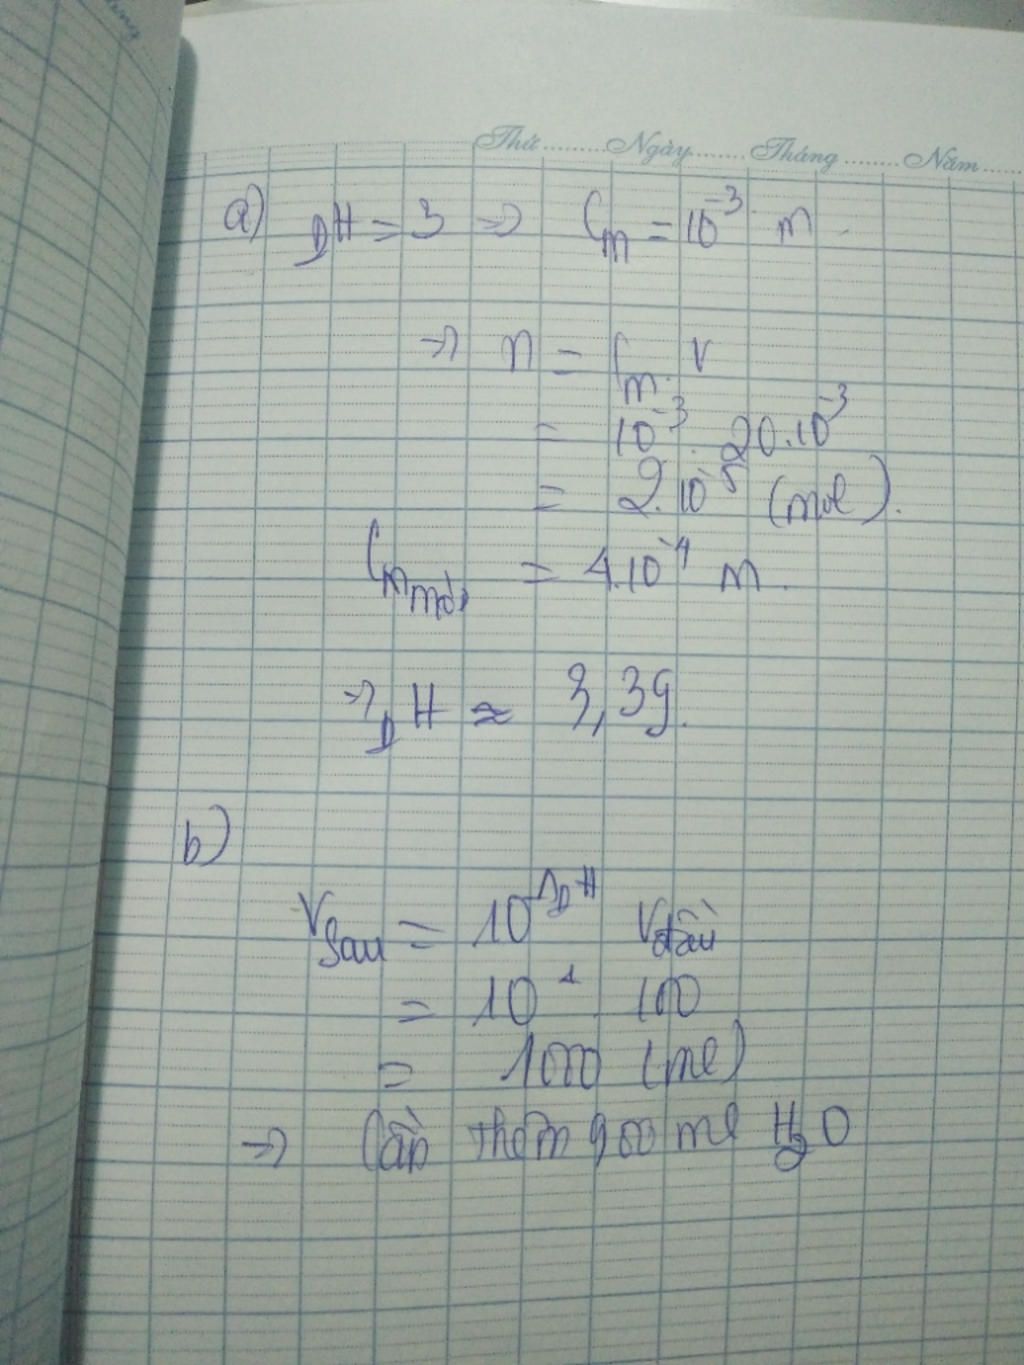 Thứ ......... Ngày ....... Tháng ........ Năm ......
a) pH = 3 => CM = 10^-3 M.
=> n = CM. V
= 10^-3. 20.10^-3
= 2.10^-5 (mol).
CM mới = 4.10^-4 M.
=> pH ≈ 3,39.
b)
Vsau = 10^ΔpH Vđầu
= 10^1. 100
= 1000 (ml)
=> Cần thêm 900 ml H2O